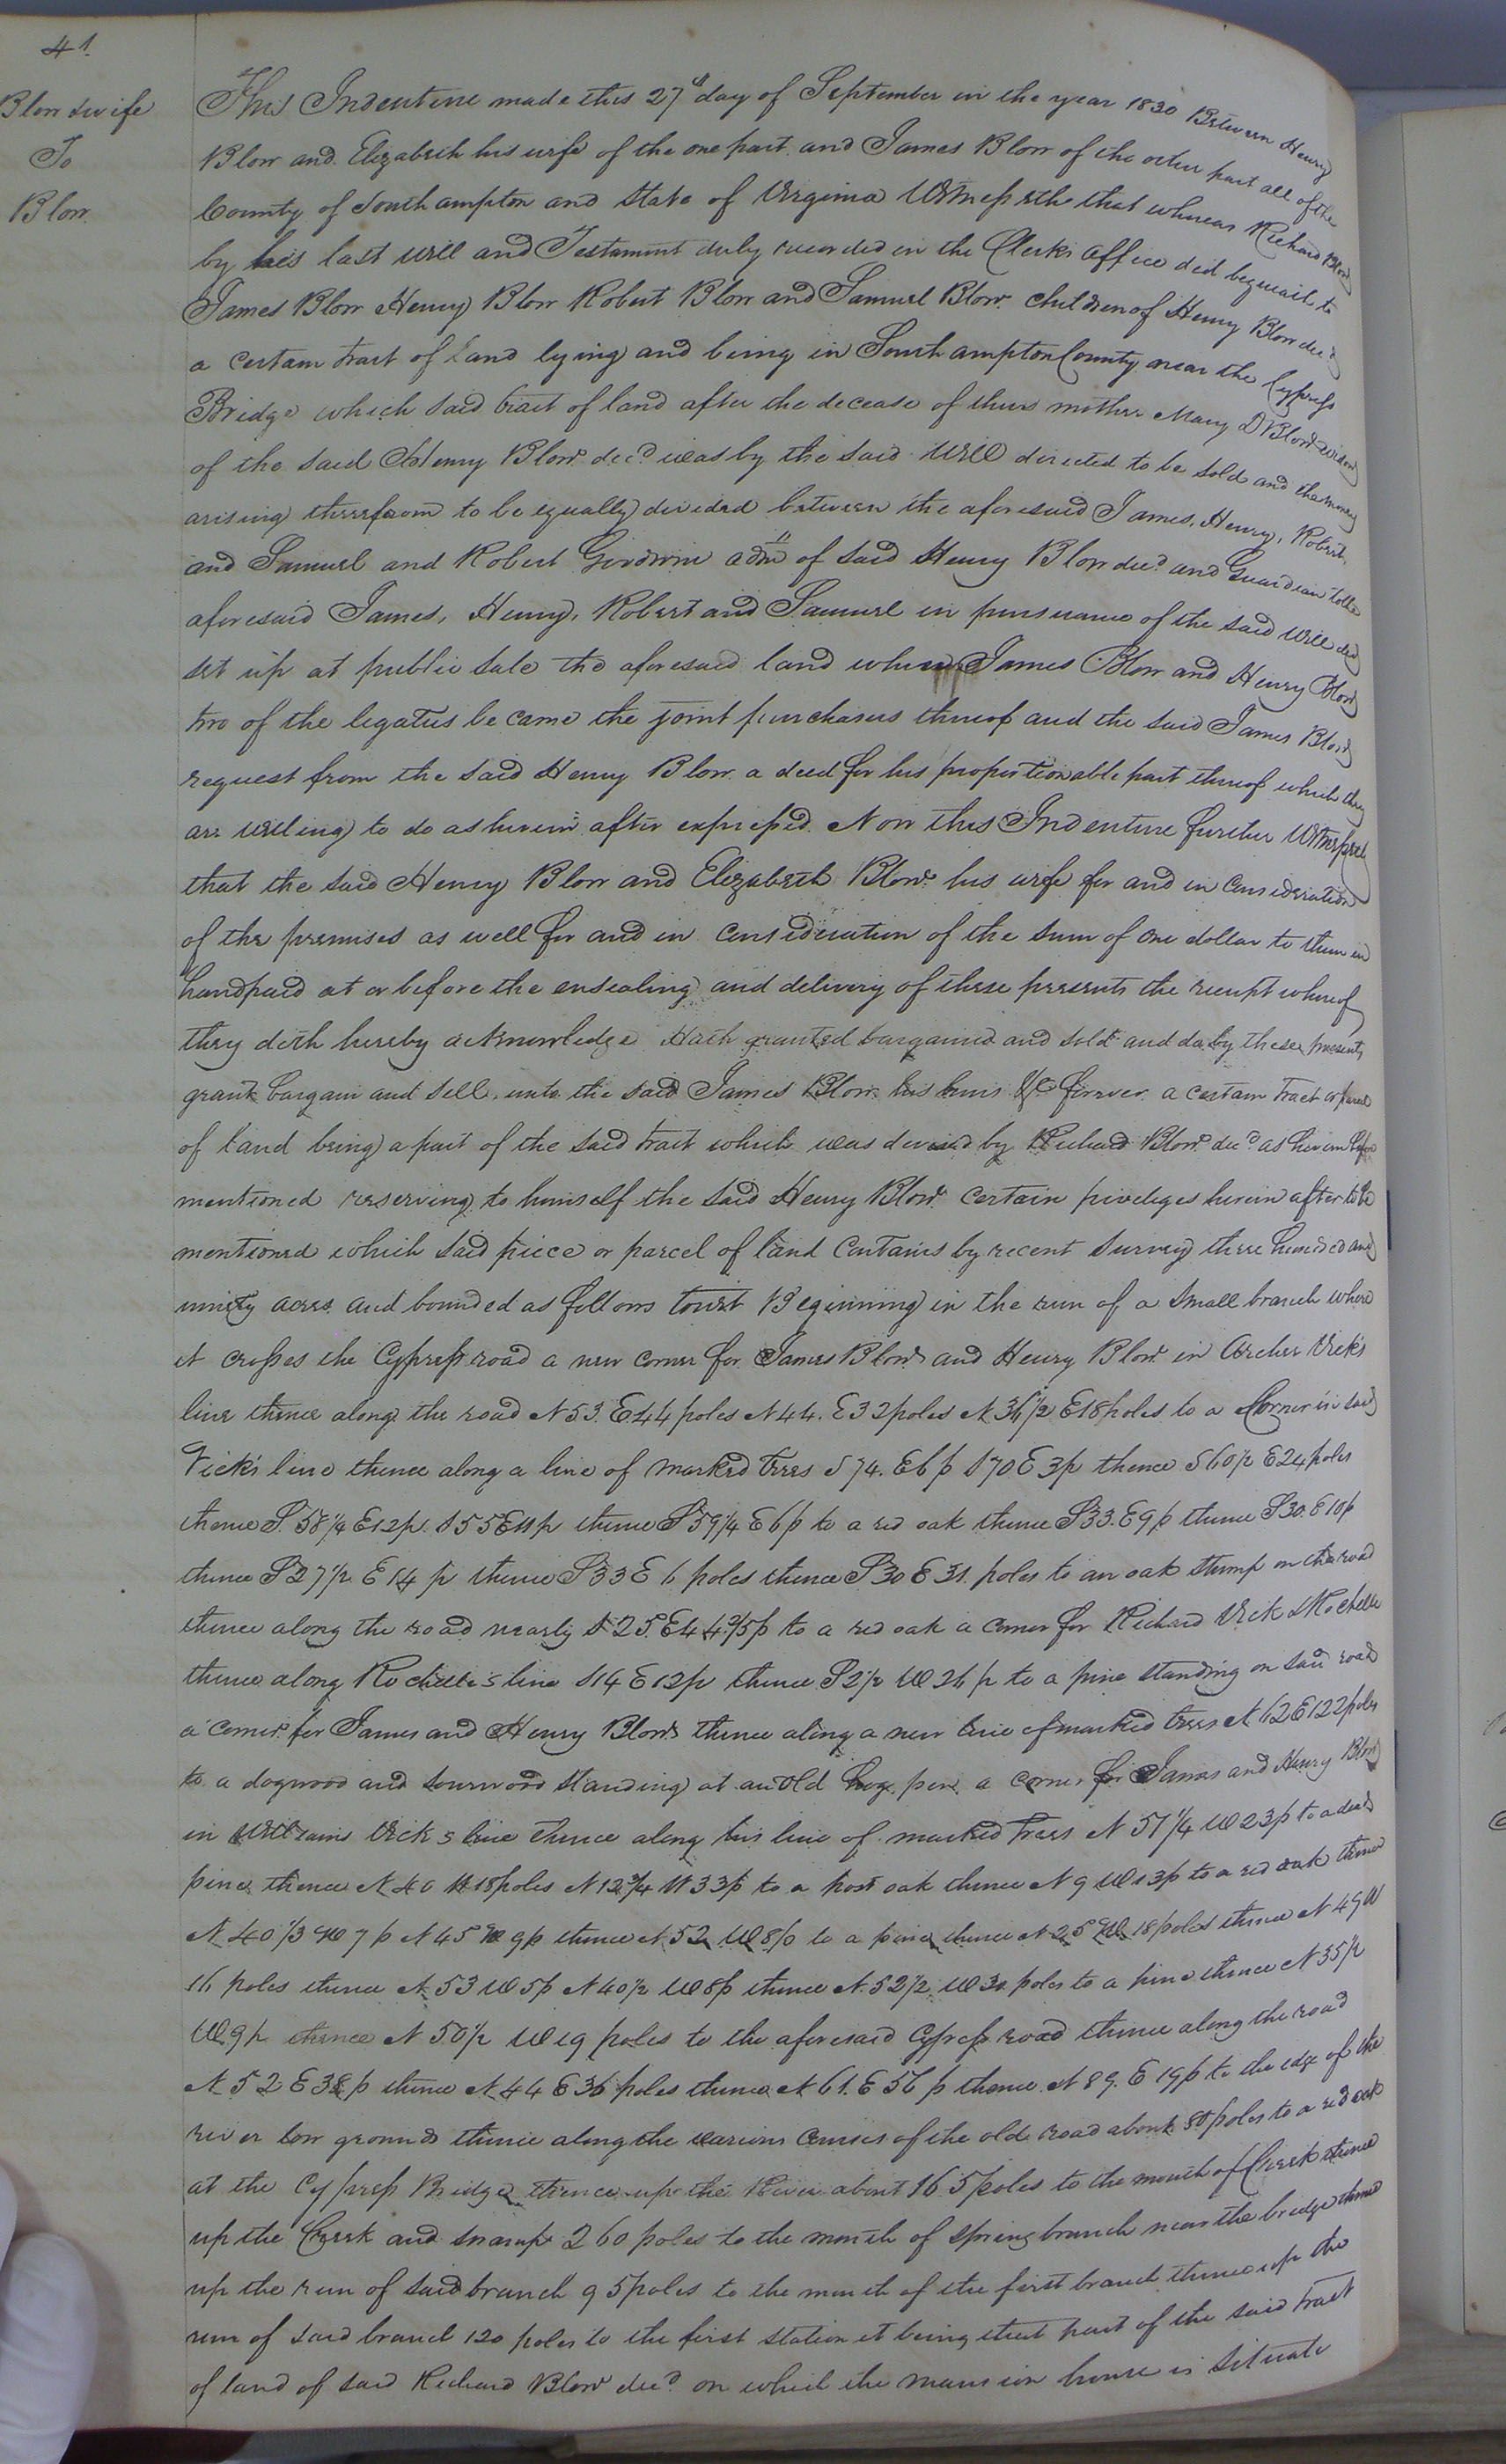 41.
Blow & wife
To
Blow
This Indenture made this 27th day of September in the year 1830 Between Henry
Blow and Elizabeth his wife of the one part and James Blow of the other part all of the
County of Southampton and State of Virginia Witnesseth that whereas Richard Blow
by his last will and Testament duly recorded in the Clerks office did bequeath to
James Blow Henry Blow Robert Blow and Samuel Blow children of Henry Blow decd
a certain tract of land lying and being in Southampton County near the Cypress
Bridge which said tract of land after the decease of thier mother Mary D Blow widow
of the said Henry Blow decd was by the said will directed to be sold and the money
arising therefrom to be equally divided between the aforesaid James, Henry, Robert,
and Samuel and Robert Goodwin adm of said Henry Blow decd and Guardian to the
aforesaid James, Henry, Robert and Samuel in pursuance of the said will did
set up at public sale the aforesaid land when James Blow and Henry Blow
two of the legatus became the joint purchasers thereof and the said James Blow
request from the said Henry Blow a deed for his proportionable part thereof which they
are willing to do as herein after expressed. Now this Indenture further Witnesseth
that the said Henry Blow and Elizabeth Blow his wife for and in consideration
of the premises as well for and in consideration of the sum of one dollar to them in
hand paid at or before the ensealing and delivery of these presents the receipt whereof
they doth hereby acknowledge Hath granted bargained and sold and do by these presents
grant bargain and sell unto the said James Blow his heirs &c forever a certain tract or parcel
of land being a part of the said tract which was devised by Richard Blow decd as herein before
mentioned reserving to himself the said Henry Blow certain priveleges herein after to be
mentioned which said piece or parcel of land contains by recent survey three hundred and
ninety acres and bounded as follows towit Beginning in the run of a small branch where
it crosses the Cypress road a new corner for James Blow and Henry Blow in Archer Vick's
line thence along the road N 53. E 44 poles N 44. E 32 poles N 36 1/2 E 18 poles to a Corner in said
Vick's line thence along a line of marked trees S 74. E 6 p S 70 E 3 p thence S 60 1/2 E 24 poles
thence S. 58 1/4 E 12 p. S 55 E 11 p thence S 59 1/4 E 6 p to a red oak thence S 33. E 9 p thence S 30. E 10 p
thence S 27 1/2. E 14 p thence S 33 E 6 poles thence S 30 E 31. poles to an oak stump on the road
thence along the road nearly S 25. E 44 2/5 p to a red oak a corner for Richard Vick & Rochelle
thence along Rochelle's line S 14 E 12 p thence S 2 1/2 W 26 p to a pine standing on said road
a corner for James and Henry Blow thence along a new line of marked trees N 62 E 122 poles
to a dogwood and sourwood standing at an old hog pen a corner for James and Henry Blow
in Williams Vick's line thence along his line of marked trees N 51 1/4 W 23 p to a dead
pine thence N 40 W 18 poles N 12 3/4 W 33 p to a post oak thence N 9 W 13 p to a red oak thence
N 40 1/3 W 7 p N 45 W 9 p thence N 52 W 8 p to a pine thence N 25 W 18 poles thence N 49 W
16 poles thence N 53 W 5 p N 40 1/2 W 8 p thence N. 52 1/2 W 30 poles to a pine thence N 35 1/2
W 9 p thence N 50 1/2 W 19 poles to the aforesaid Cypress road thence along the road
N 52 E 38 p thence N 44 E 36 poles thence N 61. E 56 p thence N 89. E 19 p to the edge of the
river low grounds thence along the various courses of the old road about 50 poles to a red oak
at the Cypress Bridge thence up the River about 165 poles to the mouth of Creek thence
up the Creek and swamp 260 poles to the mouth of spring branch near the bridge thence
up the run of said branch 95 poles to the mouth of the first branch thence up the
run of said branch 120 poles to the first station it being that part of the said tract
of land of said Richard Blow decd on which the mansion house is situate